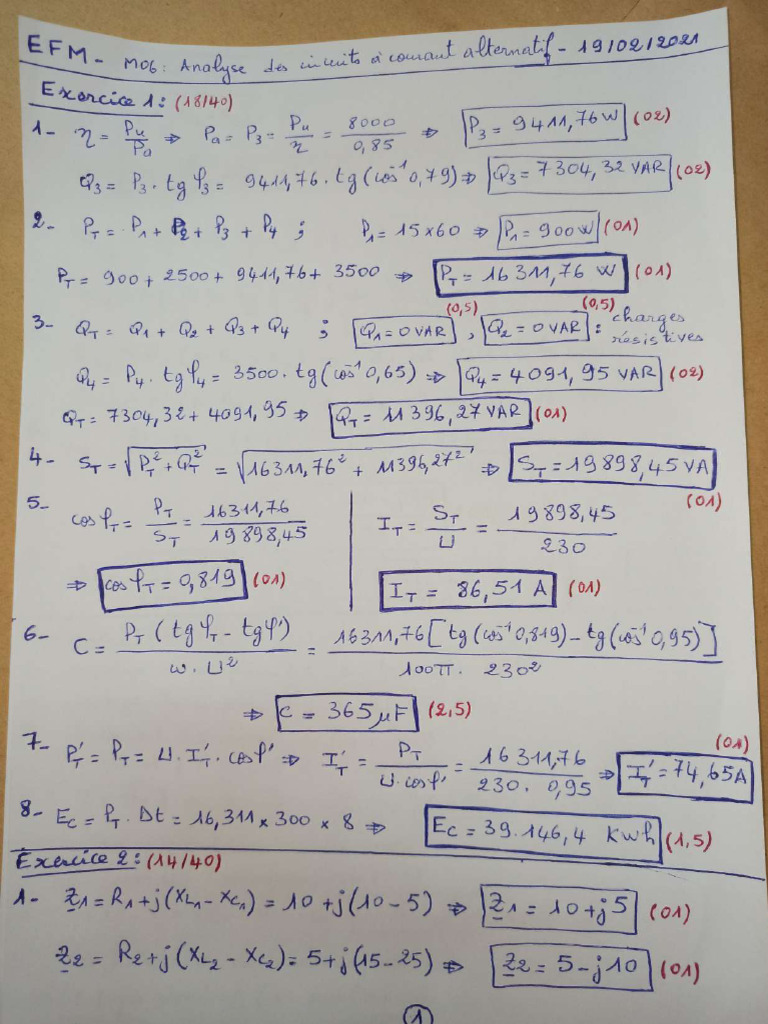 EFM - M06: Analyse des circuits à courant alternatif - 19/02/2021
Exercice 1: (18/40)
1- η = Pu/Pa ⇒ Pa = P3 = Pu/η = 8000/0,85 ⇒ P3 = 9411,76 W (02)
Q3 = P3 . tgφ3 = 9411,76 . tg(cos⁻¹ 0,79) ⇒ Q3 = 7304,32 VAR (02)
2- PT = P1 + P2 + P3 + P4 ; P1 = 15×60 ⇒ P1 = 900 W (01)
PT = 900 + 2500 + 9411,76 + 3500 ⇒ PT = 16311,76 W (01)
3- QT = Q1 + Q2 + Q3 + Q4 ; Q1 = 0 VAR (0,5) , Q2 = 0 VAR (0,5) : charges résistives
Q4 = P4 . tgφ4 = 3500 . tg(cos⁻¹ 0,65) ⇒ Q4 = 4091,95 VAR (02)
QT = 7304,32 + 4091,95 ⇒ QT = 11396,27 VAR (01)
4- ST = √(PT² + QT²) = √(16311,76² + 11396,27²) ⇒ ST = 19898,45 VA (01)
5- cosφT = PT/ST = 16311,76/19898,45
⇒ cosφT = 0,819 (01)
IT = ST/U = 19898,45/230
IT = 86,51 A (01)
6- C = PT (tgφT - tgφ')/(w . U²) = 16311,76 [tg(cos⁻¹ 0,819) - tg(cos⁻¹ 0,95)]/(100π . 230²)
⇒ C = 365 µF (2,5)
7- P'T = PT = U . I'T . cosφ' ⇒ I'T = PT/(U . cosφ') = 16311,76/(230 . 0,95) ⇒ I'T = 74,65 A (01)
8- Ec = PT . Dt = 16,311 × 300 × 8 ⇒ Ec = 39.146,4 Kwh (1,5)
Exercice 2: (14/40)
1- Z1 = R1 + j(XL1 - XC1) = 10 + j(10 - 5) ⇒ Z1 = 10 + j5 (01)
Z2 = R2 + j(XL2 - XC2) = 5 + j(15 - 25) ⇒ Z2 = 5 - j10 (01)
1